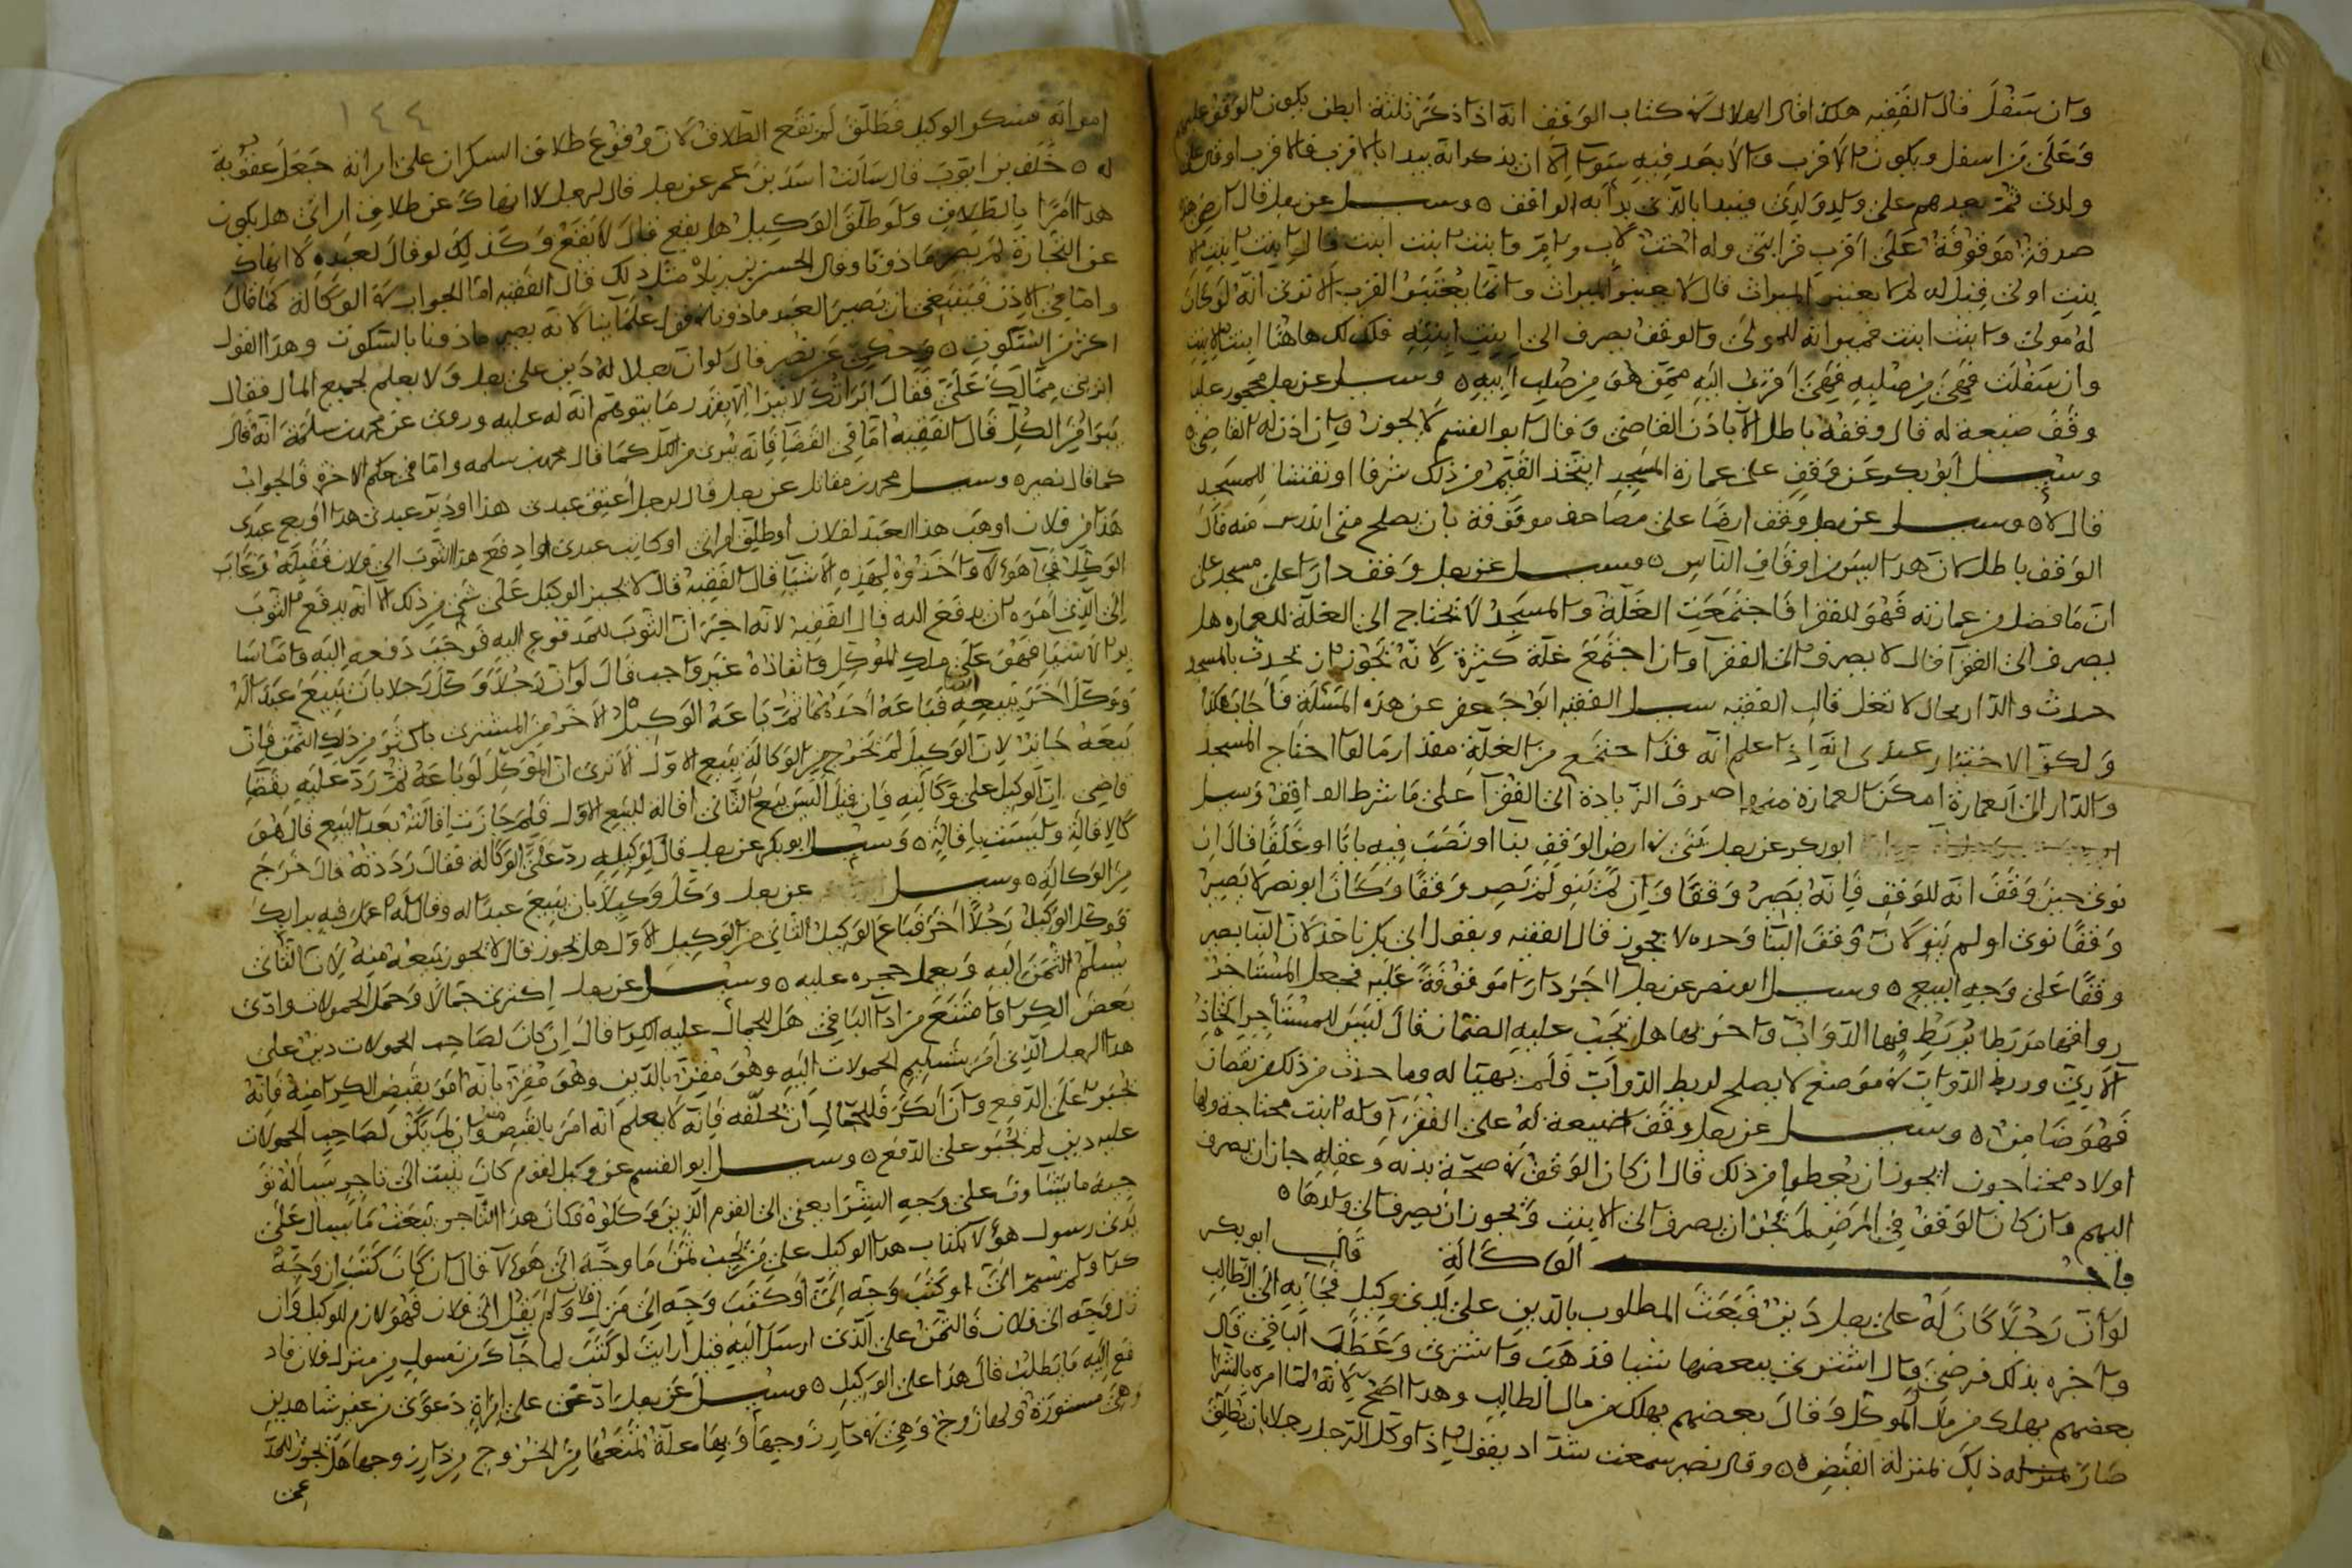 وان سفل قال الفقيه هكذا قال هلال في كتاب الوقف انه اذا ذكر ثلثة ابطن يكون الوقف عليهم
وعلى من اسفل ويكون الاقرب والابعد فيه سوآ الا ان يذكر انه يبدا بالاقرب فالاقرب او قال على
ولدى ثم بعدهم على ولد ولدى فيبدا بالذى بدأ به الواقف ٥ وسيل عن رجل قال ارضى هذه
صدقة موقوفة على اقرب قرابتى وله اخت لاب وام وابنت ابنت ابنت قال ابنت ابنت
بنت اولى قيل له لم لا يعتبر الميراث قال لا يعتبر الميراث وانما يعتبر القرب الا ترى انه لو كان
له مولى وابنت ابنت فميراثه للمولى والوقف يصرف الى ابنت ابنته فكذلك هاهنا ابنت الابنت
وان سفلت فهى من صلبه فهى اقرب اليه ممن هو من صلب ابيه ٥ وسيل عن رجل محجور عليه
وقف ضيعة له قال وقفه باطل الا باذن القاضى وقال ابو القسم لا يجوز وان اذن له القاضى ٥
وسيل ابو بكر عن وقف على عمارة المسجد ايتخذ القيم من ذلك شرفا او نقشا للمسجد
قال لا ٥ وسيل عن رجل وقف ارضا على مصاحف موقوفة بان يصلح متى اندرس منه قال
الوقف باطل لان هذا ليس من اوقاف الناس ٥ وسيل عن رجل وقف دارا على مسجد على
ان ما فضل من عمارته فهو للفقرا فاجتمعت الغلة والمسجد لا تحتاج الى الغلة للعماره هل
يصرف الى الفقرآ قال لا يصرف الى الفقرآ وان اجتمع غلة كثيرة لانه يجوز ان يحدث بالمسجد
حدث والدار بحال لا تغل قال الفقيه سيل الفقيه ابو جعفر عن هذه المسئلة فاجاب هكذا
ولكن الاختيار عندى انه اذا علم انه قد اجتمع من الغلة مقدار ما لو احتاج المسجد
والدار الى العمارة امكن العمارة منها صرف الزيادة الى الفقرآ على ما شرط الواقف وسيل
ابو بكر عن رجل بنى في ارض الوقف بنا او نصب فيه بابا او غلقا قال ان
نوى حين وقف انه للوقف فانه يصير وقفا وان لم ينو لم يصر وقفا وكان ابو نصر لا يصير
وقفا نوى او لم ينو لان وقف البنا وحده لا يجوز قال الفقيه وبقول ابى بكر ناخذ لان البنا يصير
وقفا على وجه البيع ٥ وسيل ابو نصر عن رجل اجر دارا موقوفة عليه فجعل المستاجر
رواقها مربطا يربط فيها الدواب واخربها هل يجب عليه الضمان قال ليس للمستاجر اتخاذ
الآرى وربط الدواب في موضع لا يصلح لربط الدواب فلم يهيا له وما حدث من ذلك من نقصان
فهو ضامن ٥ وسيل عن رجل وقف ضيعة له على الفقرآ وله ابنت محتاجة ولها
اولاد محتاجون ايجوز ان يعطوا من ذلك قال ان كان الوقف في صحة بدنه وعقله جاز ان يصرف
اليهم وان كان الوقف في المرض لم يجز ان يصرف الى الابنت ويجوز ان يصرف الى ولدها ٥
باب الوكالة قال ابو بكر
لو ان رجلا كان له على رجل دين فبعث المطلوب بالدين على يدى وكيل فجا به الى الطالب
واخبره بذلك فرضى وقال اشترى ببعضها شيا فذهب واشترى وعطب الباقى قال
بعضهم يهلك من مال الموكل وقال بعضهم يهلك من مال الطالب وهذا اصح لانه لما امره بالشرا
صار ذلك بمنزلة القبض ٥ وقال نصر سمعت شداد يقول اذا وكل الرجل رجلا بان يطلق
١٤٤
امراته فسكر الوكيل فطلق لم تقع الطلاق لان وقوع طلاق السكران على امراته جعل عقوبة
له ٥ خلف بن ايوب قال سالت اسد بن عمر عن رجل قال لرجل لا انهاك عن طلاق امراتى هل يكون
هذا امرا بالطلاق ولو طلق الوكيل هل يقع قال لا يقع وكذلك لو قال لعبده لا انهاك
عن التجارة لم يصر ماذونا وقال الحسن بن زياد مثل ذلك قال الفقيه اما الجواب في الوكالة كما قال
واما في الاذن فينبغى ان يصير العبد ماذونا في قول علمآينا لانه يصير ماذونا بالسكوت وهذا القول
اكثر من السكوت ٥ وحكى عن نصر قال لو ان رجلا له دين على رجل ولا يعلم بجميع المال فقال
ابرنى ممالك على فقال ابراتك لا يبرا الا بقدر ما يتوهم انه له عليه وروى عن محمد بن سلمة انه قال
يبرا من الكل قال الفقيه اما في القضآ فانه يبرى من الكل كما قال محمد بن سلمه واما في حكم الاخرة فالجواب
كما قال نصير ٥ وسيل محمد بن مقاتل عن رجل قال لرجل اعتق عبدى هذا او دبر عبدى هذا او بع عبدى
هذا من فلان او هب هذا العبد لفلان او طلق امراتى او كاتب عبدى او ادفع هذا الثوب الى فلان فقبله وغاب
الوكيل فجآ هولآ واخذوه لهذه الاشيآ قال الفقيه قال لا يجبر الوكيل على شى من ذلك الا انه يدفع الثوب
الى الذى امره ان يدفع اليه قال الفقيه لانه اخبر ان الثوب للمدفوع اليه فوجب دفعه اليه واما سا
ير الاشيا فهو على ملك الموكل وانفاذه غير واجب قال لو ان رجلا وكل رجلا بان يبيع عبدا له
ووكل اخر ببيعه فباعه احدهما ثم باعه الوكيل الاخر من المشترى باكثر من ذلك الثمن فان
بيعه جايز لان الوكيل لم تخرج من الوكالة ببيع الاول الا ترى ان الموكل لو باعه ثم رد عليه بقضآ
قاضى ان الوكيل على وكالته فان قيل اليس بيع الثانى اقالة للبيع الاول فلم جازت اقالته بعد البيع قال هو
كالاقالة وليست باقالة ٥ وسيل ابو بكر عن رجل قال لوكيله رد على الوكالة فقال رددته قال خرج
من الوكالة ٥ وسيل عن رجل وكل وكيلا بان يبيع عبدا له وقال له اعمل فيه برايك
فوكل الوكيل رجلا اخر فباع الوكيل الثانى من الوكيل الاول هل يجوز قال لا يجوز بيعه منه لان الثانى
يسلم الثمن اليه ويعمل حجره عليه ٥ وسيل عن رجل اكترى جمالا وحمل الحمولات وادى
بعض الكرا وامتنع من ادآ الباقى هل للجمال عليه الكرا قال ان كان لصاحب الحمولات دين على
هذا الرجل الذى امر بتسليم الحمولات اليه وهو مقر بالدين وهو مقر بانه امر بقبض الكرا منه فانه
يجبر على الدفع وان انكر فللجمال ان يحلفه فانه لا يعلم انه امر بالقبض منه وان لم يكن لصاحب الحمولات
عليه دين لم يجبر على الدفع ٥ وسيل ابو القسم عن وكيل لقوم كان يبعث الى تاجر يساله تو
جيه ما يشآون على وجه الشرا يعنى الى القوم الذين وكلوه فكان هذا التاجر يبعث ما يسال على
يدى رسول هؤلا بكتاب هذا الوكيل على من يجب ثمن ما وجه الى هولآ قال ان كان كتب ان وجه
كذا ولم يسم الى او كتب وجه الى او كتب وجه الى منزل فلان ولم يقل الى فلان فهو لازم للوكيل وان
قال وجه الى فلان فالثمن على الذى ارسل اليه قيل ارايت لو كتب لما جآك من رسول من منزل فلان فاد
فع اليه ما يطلب قال هذا على الوكيل ٥ وسيل عن رجل ادعى على امراة دعوى من غير شاهدين
وهى مستورة ولها زوج وهى في دار زوجها وبها علة تمنعها من الخروج من دار زوجها هل يجوز للمد
عى